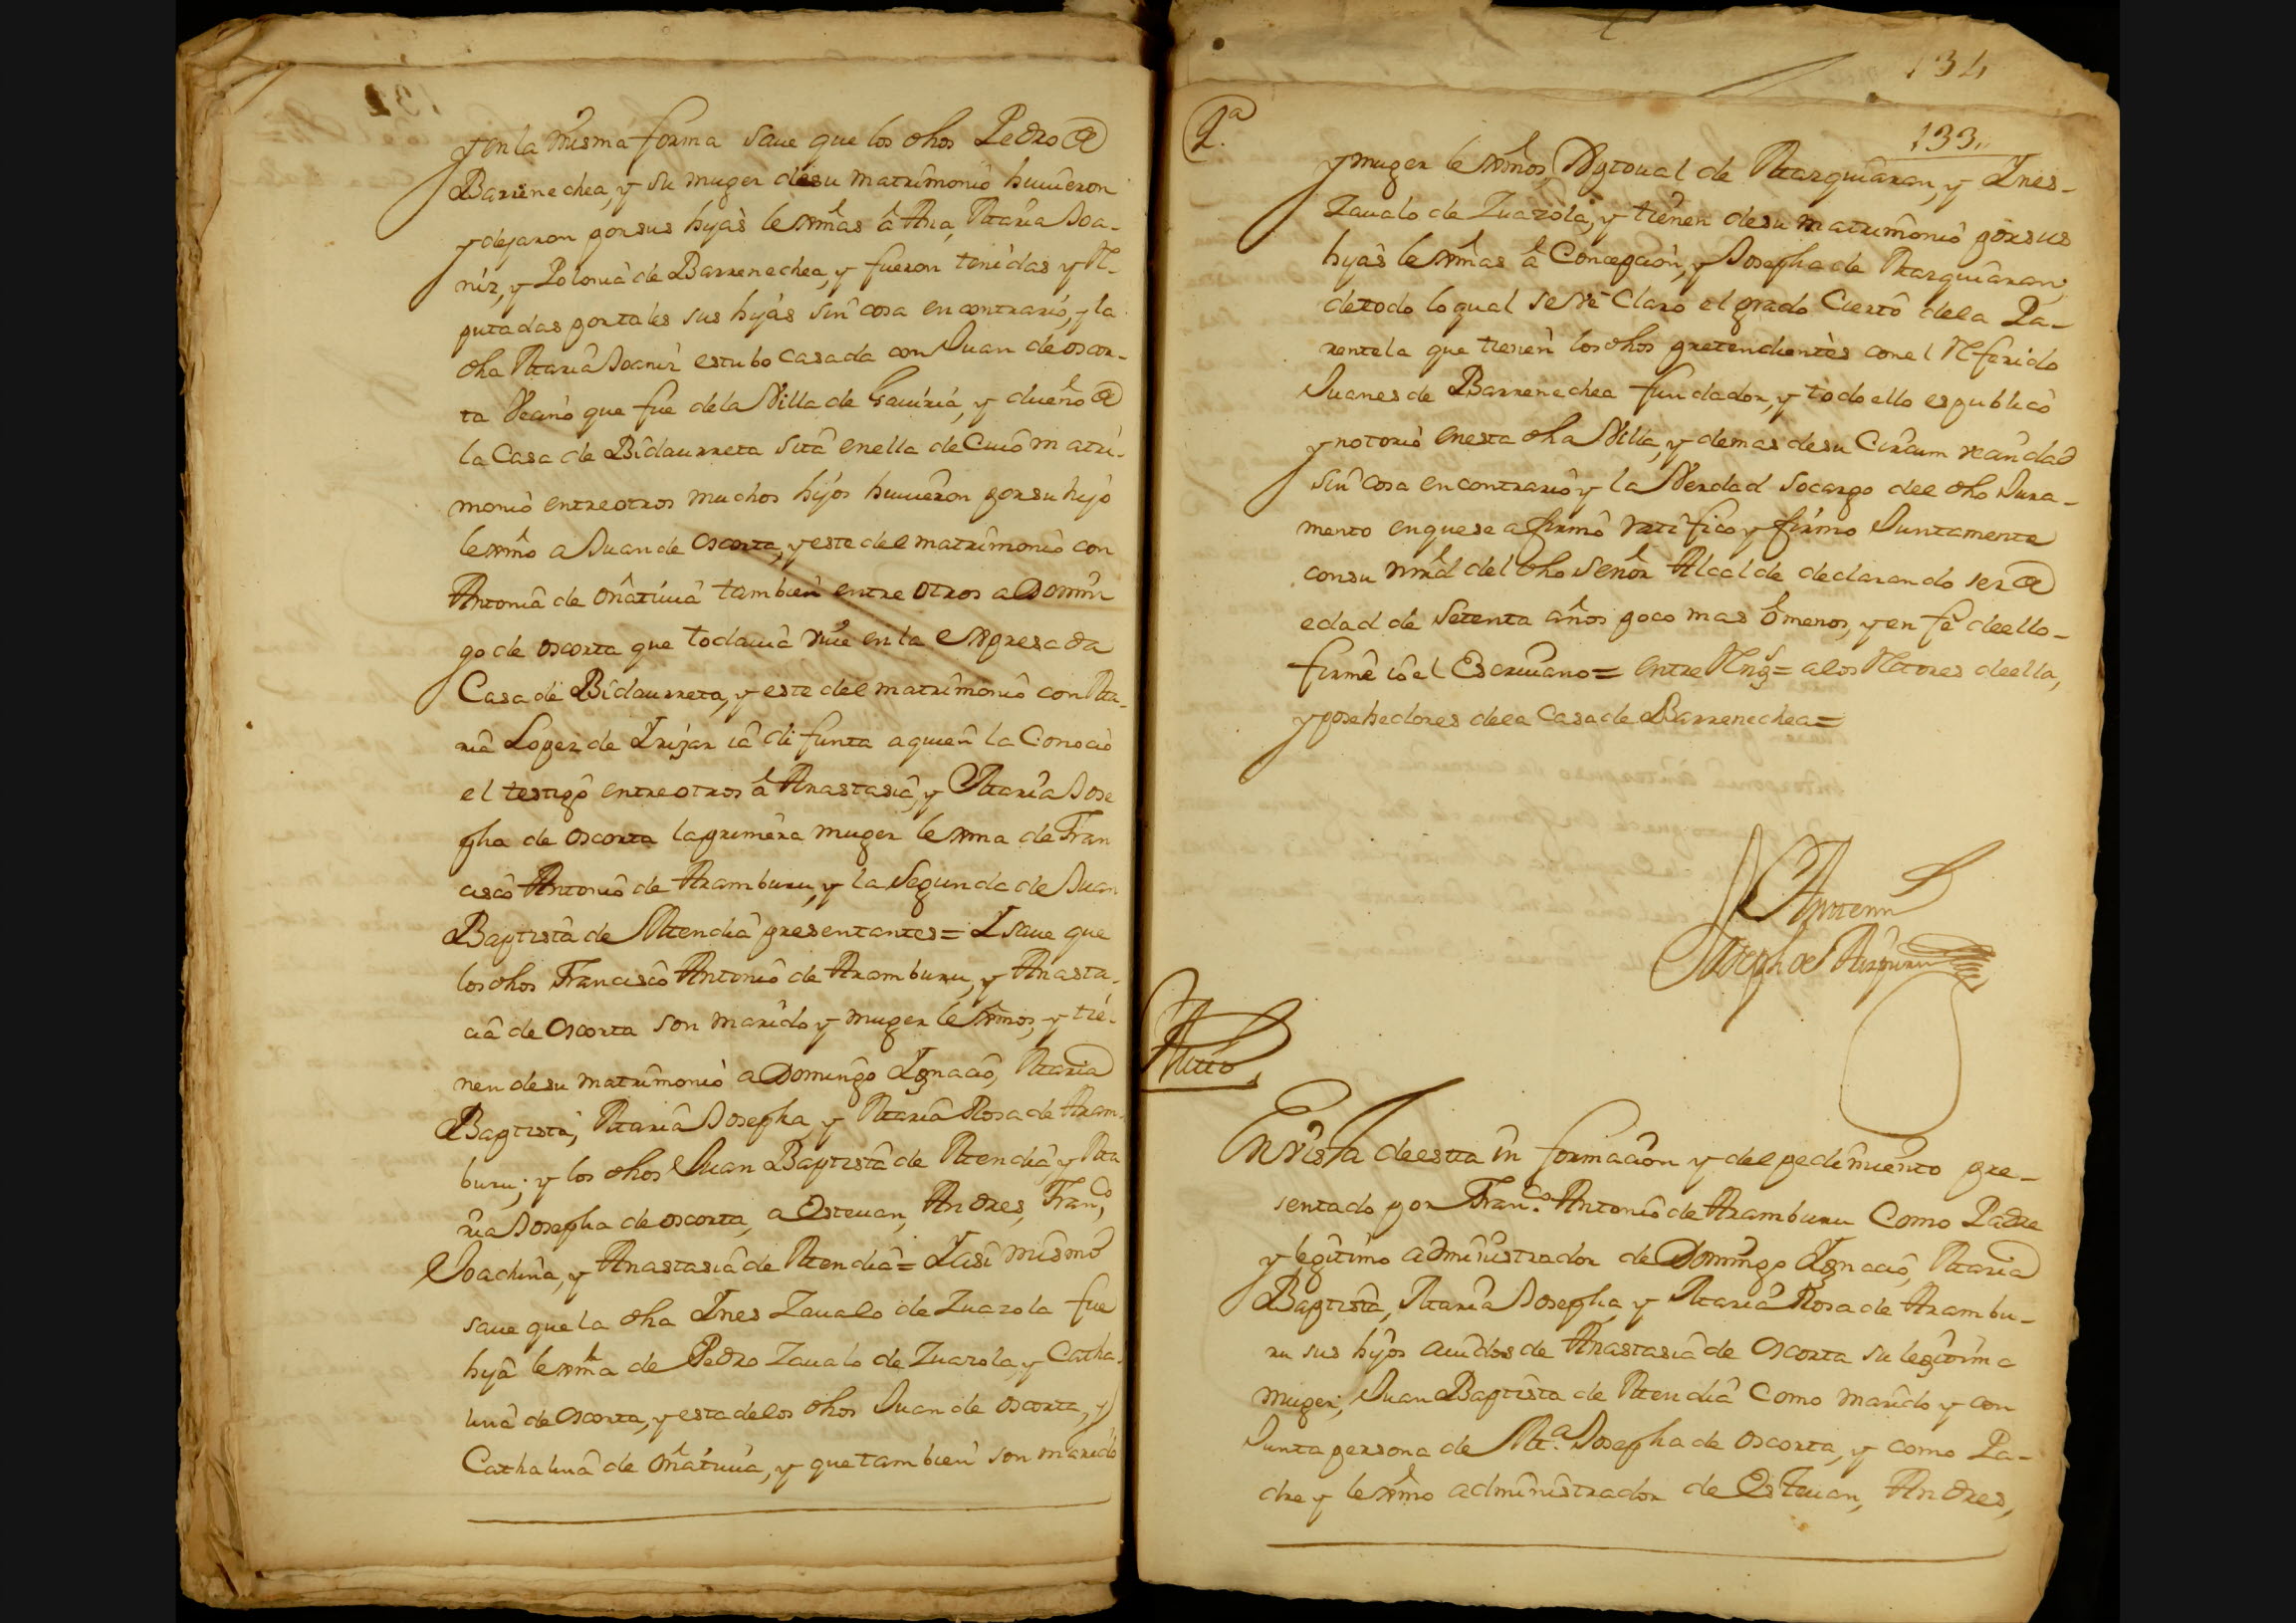 y en la misma forma saue que los dhos Pedro de
Barrenechea, y su muger de su matrimonio huuieron
y dejaron por sus hijas lexmas â Ana, Maria Joa-
niz, y Polonia de Barrenechea, y fueron tenidas y Re-
putadas por tales sus hijas sin cosa en contrario, y la
dha Maria Joaniz estubo casada con Juan de oscor-
ta Vecino que fue de la Villa de Gauiria, y dueño de
la Casa de Bidaurreta sita en ella de Cuio matri-
monio entre otros muchos hijos huuieron por su hijo
lexmo a Juan de oscorta, y este del matrimonio con
Antonia de oñatiuia tambien entre otros a Domin
go de oscorta que todauia viue en la expresada
Casa de Bidaurreta, y este del matrimonio con Ma-
ria Lopez de Irizar iâ difunta a quien la Conocio
el testigo entre otros â Anastasia, y Maria Jose
pha de oscorta la primera muger lexma de Fran
cisco Antonio de Aramburu, y la Segunda de Juan
Baptista de Mendia presentantes = Y saue que
los dhos Francisco Antonio de Aramburu, y Anasta-
cia de oscorta son marido y muger lexmos, y tie-
nen de su matrimonio a Domingo Ignacio, Maria
Baptista, Maria Josepha, y Maria Rosa de Aram-
buru; y los dhos Juan Baptista de Mendia, y Ma
ria Josepha de oscorta, a Esteuan, Andres, Franco,
Joachina, y Anastasia de Mendia = Y asi mismo
saue que la dha Ines Zaualo de Zuazola fue
hija lexma de Pedro Zaualo de Zuazola, y Catha-
lina de oscorta, y esta de los dhos Juan de oscorta, y
Cathalina de oñatiuia, y que tambien son marido
134
133
y muger lexmos, Xptoual de Marquiaran, y Ines-
Zaualo de Zuazola, y tienen de su matrimonio por sus
hijas lexmas â Concepcion, y Josepha de Marquiaran,
de todo lo qual se vè Claro el grado Cierto de la Pa-
rentela que tienen los dhos pretendientes con el Referido
Juanes de Barrenechea fundador, y todo ello es publico
y notorio en esta dha Villa, y demas de su Circumvecindad
sin cosa en contrario y la Verdad so cargo del dho Jura-
mento en que se afirmò ratifico y firmo Juntamente
con su mrd del dho señor Alcalde declarando ser de
edad de setenta años poco mas ô menos, y en fe de ello-
firmè io el Escriuano = entre Rengs = a los Retores de ella,
y posehedores de la Casa de Barrenechea =
Ante mi
Joseph de Aizpuru
Auto
En vista de esta informacion y del pedimiento pre-
sentado por Franco Antonio de Aramburu Como Padre
y legitimo administrador de Domingo Ignacio, Maria
Baptista, Maria Josepha, y Maria Rosa de Arambu-
ru sus hijos auidos de Anastasia de oscorta su legitima
muger, Juan Baptista de Mendia Como marido y con
Junta persona de Ma Josepha de oscorta, y como Pa-
dre y lexmo administrador de Esteuan, Andres,